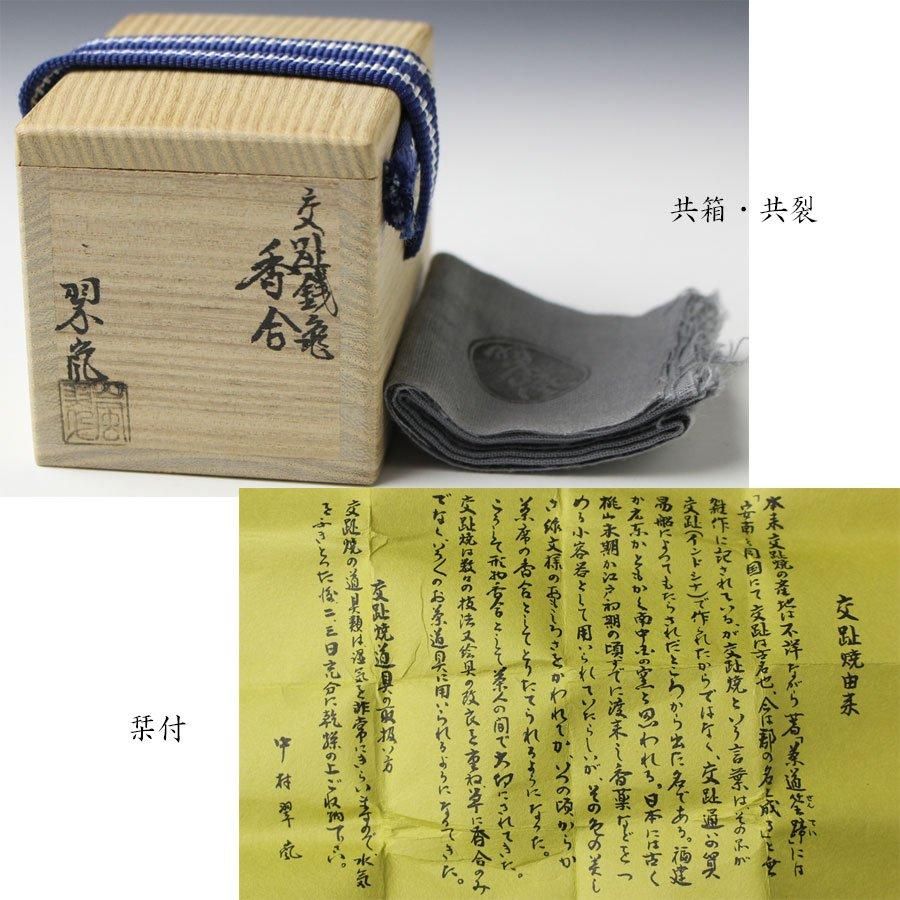 交趾銭亀
香合
翠嵐
共箱・共裂
栞付
交趾焼由来
本来交趾焼の産地は不詳ながら著「茶道筌蹄」には
せんてい
「安南と同国にて交趾は古名也、今は郡の名と成る」と無
雑作に記されているが交趾焼という言葉は、その品が
交趾(インドシナ)で作られたからではなく、交趾通いの貿
易船によってもたらされたところから出た名である。福建
か広東かともかく南中国の窯と思われる。日本には古く
桃山末期か江戸初期の頃すでに渡来し香薬などをつ
める小容器として用いられていたらしいが、その色の美し
さ線文様のおもしろさとかわれてか、いつの頃からか
茶席の香合としてとりたてられるようになった。
こうして形物香合として茶人の間で大切にされてきた。
交趾焼は数々の技法又絵具の改良を重ね単に香合のみ
でなく、いろいろのお茶道具に用いられるようになってきた。
交趾焼道具の取扱い方
交趾焼の道具類は湿気を非常にきらいますので水気
をふきとった後二、三日充分に乾燥の上ご収納下さい。
中村翠嵐